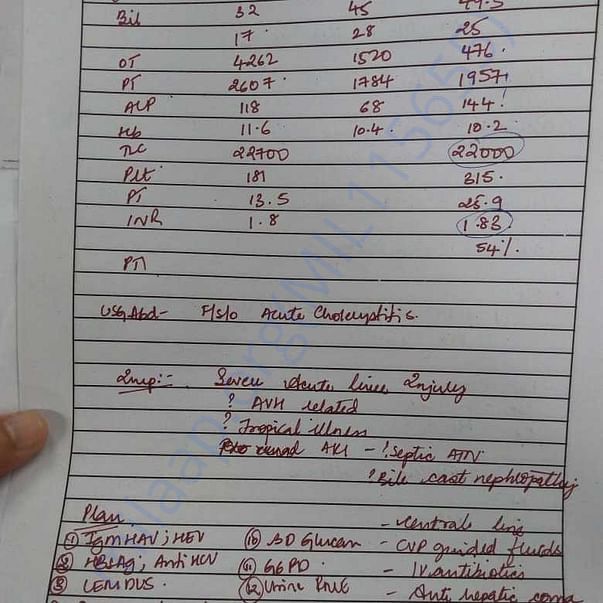 Bil 32 45 49.5
17 28 25
OT 4262 1520 476.
PT 2607 1784 1957
ALP 118 68 144
Hb 11.6 10.4 10.2
TLC 22700 22000
Plt 181 315.
PT 13.5 25.9
INR 1.8 1.83
54%.
PT
USG Abd- F/S/O Acute Cholecystitis.
Imp:- Severe Acute liver Injury
? AVH related
? Tropical illness
renal AKI - ? Septic ATN
? Bile cast nephropathy
Plan
- Central line
① IgM HAV; HEV ⑩ BD Glucan - CVP guided fluids
② HBsAg; Anti HCV ⑪ G6PD. - IV antibiotics
③ LEMDVS. ⑫ Urine - Anti hepatic coma